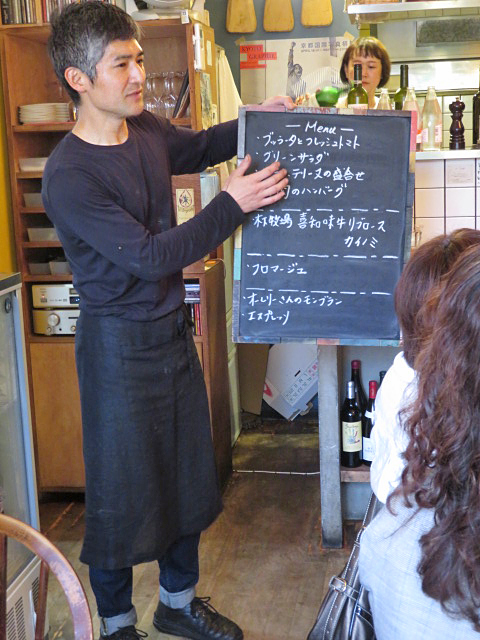 — Menu —
・ブッラータとフレッシュトマト
・グリーンサラダ
テリーヌの盛合せ
のハンバーグ
・木村牧場 喜和味牛リブロース
カイノミ
・フロマージュ
・オレリーさんのモンブラン
・エスプレッソ